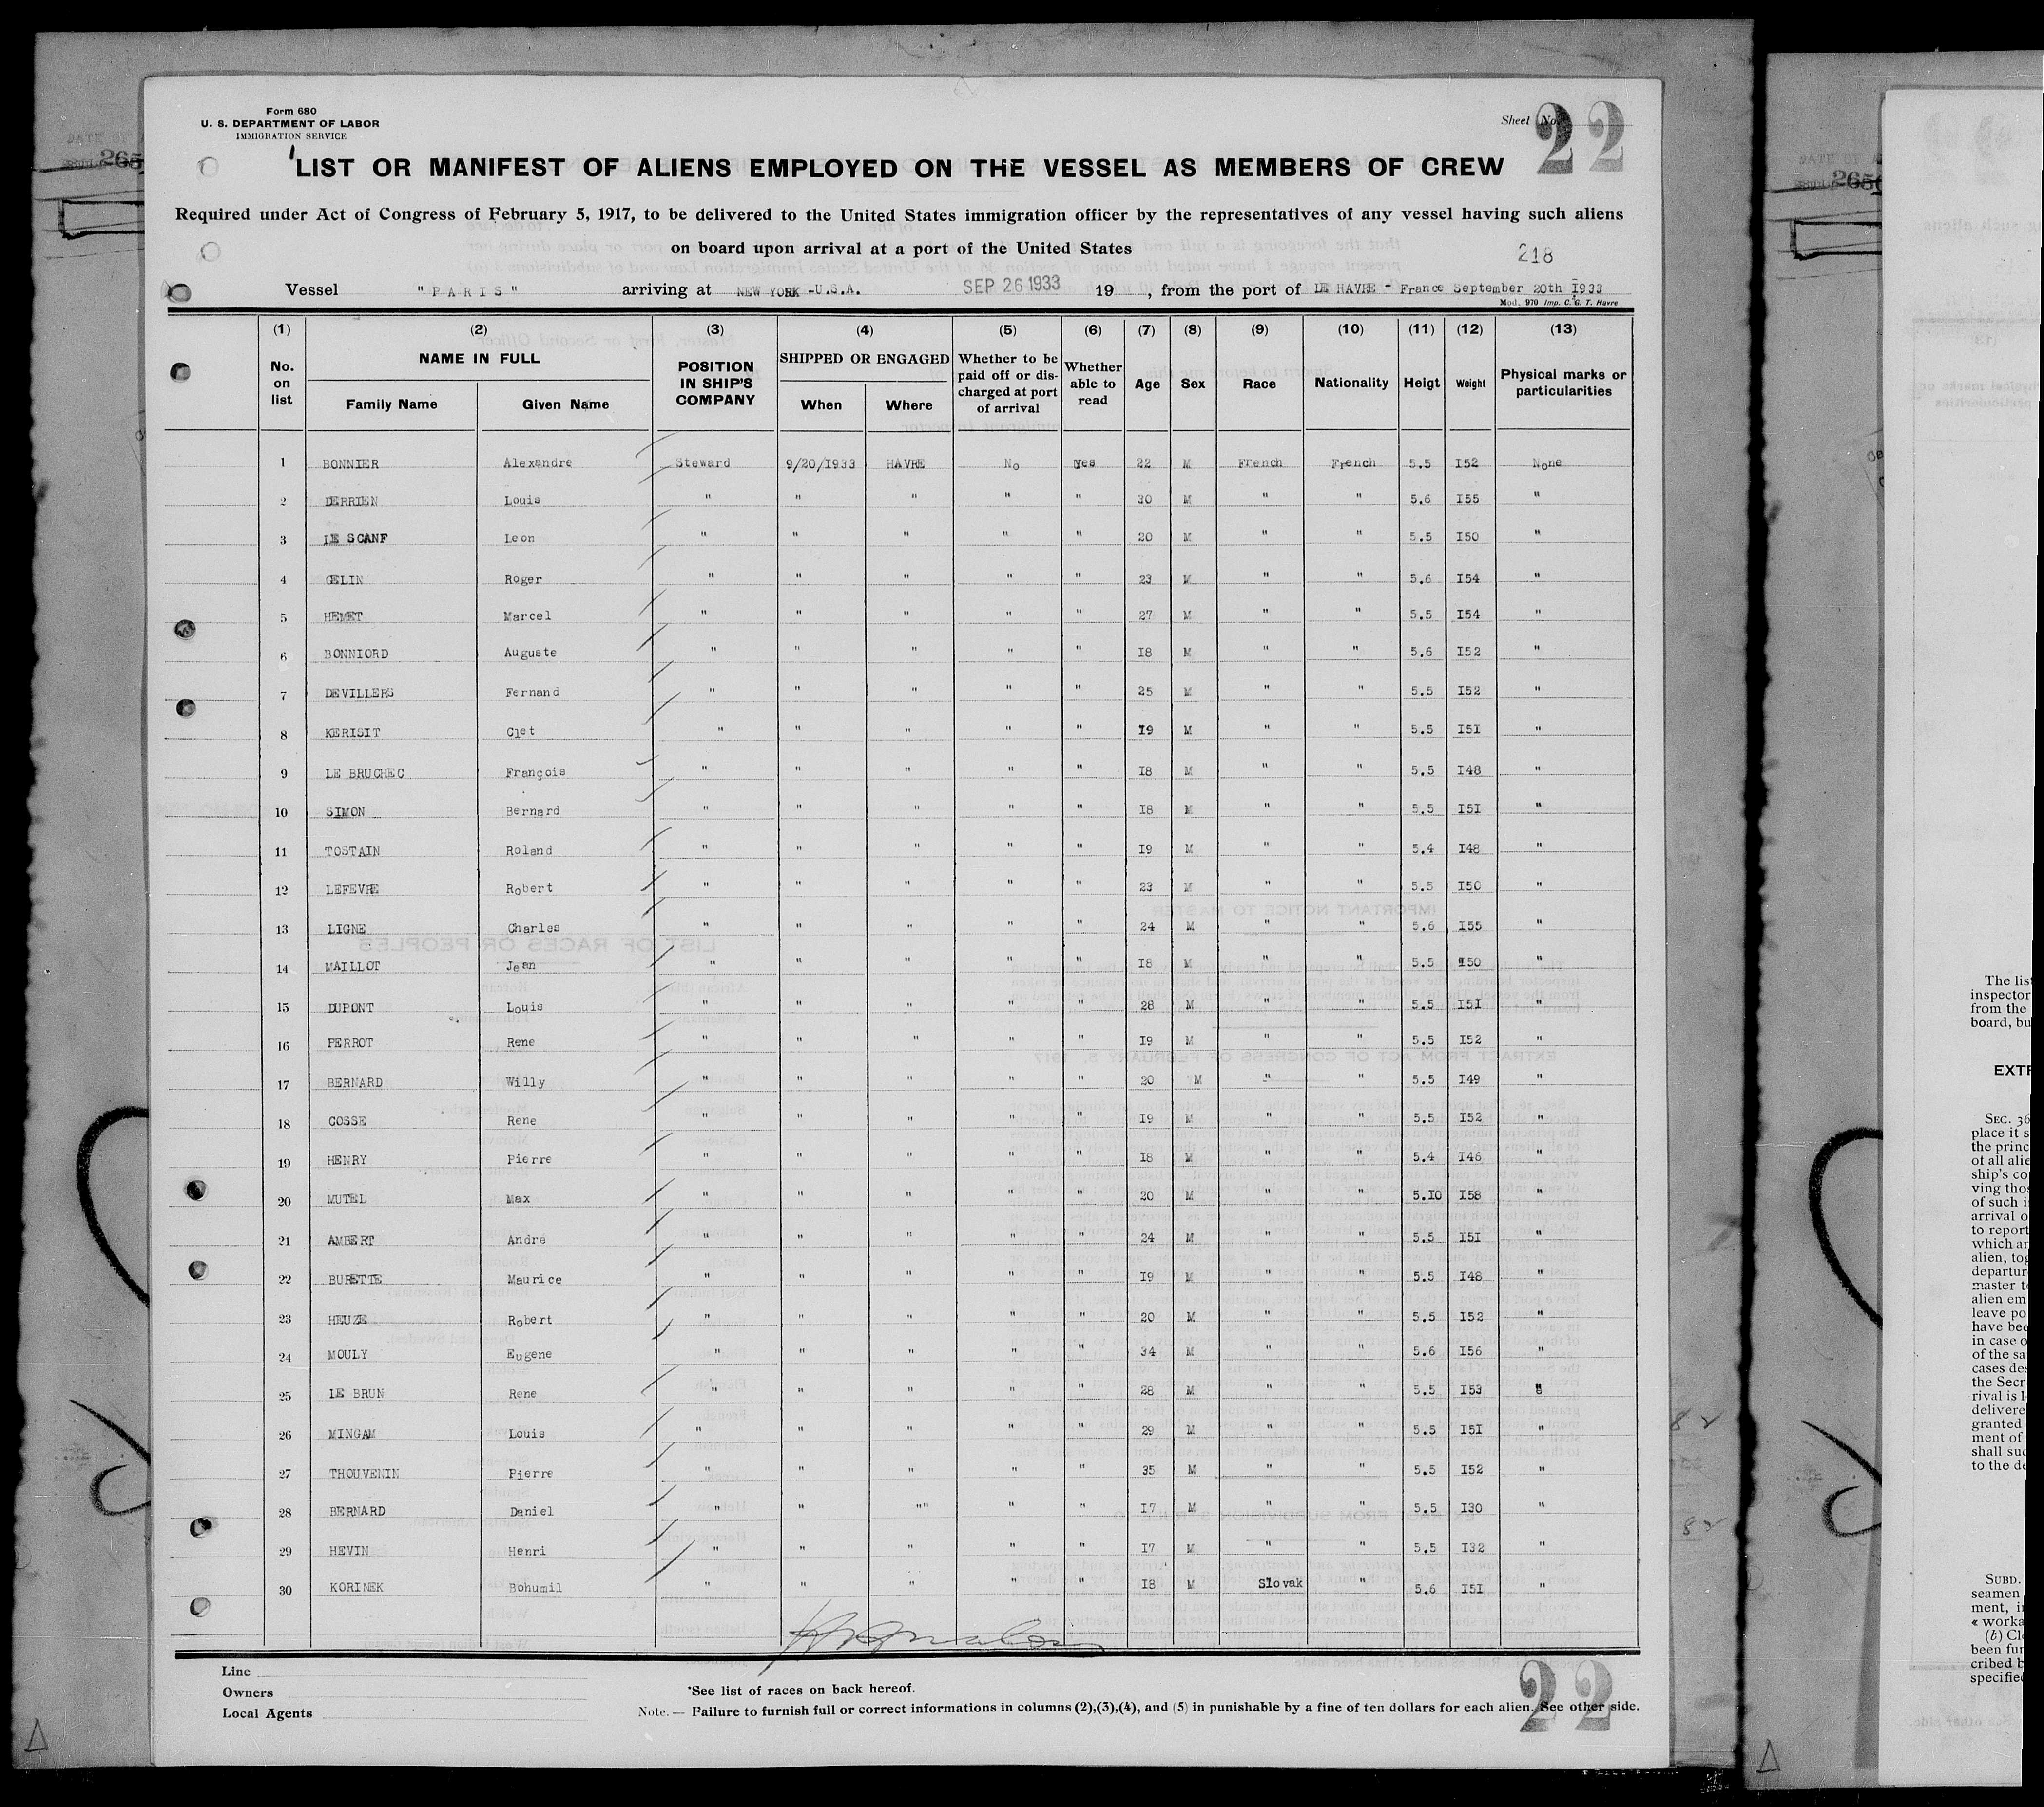 Form 680
U. S. DEPARTMENT OF LABOR
IMMIGRATION SERVICE
Sheet No. 22
LIST OR MANIFEST OF ALIENS EMPLOYED ON THE VESSEL AS MEMBERS OF CREW
Required under Act of Congress of February 5, 1917, to be delivered to the United States immigration officer by the representatives of any vessel having such aliens
on board upon arrival at a port of the United States
218
Vessel "PARIS" arriving at NEW YORK -U.S.A. SEP 26 1933 19 , from the port of LE HAVRE - France September 20th I933
Mod. 970 Imp. C. G. T. Havre
(1) (2) (3) (4) (5) (6) (7) (8) (9) (10) (11) (12) (13)
No. on list NAME IN FULL Family Name Given Name POSITION IN SHIP'S COMPANY SHIPPED OR ENGAGED When Where Whether to be paid off or discharged at port of arrival Whether able to read Age Sex Race Nationality Heigt Weight Physical marks or particularities
1 BONNIER Alexandre Steward 9/20/I933 HAVRE No yes 22 M French French 5.5 I52 None
2 DERRIEN Louis " " " " " 30 M " " 5.6 I55 "
3 LE SCANF Leon " " " " " 20 M " " 5.5 I50 "
4 GELIN Roger " " " " " 23 M " " 5.6 I54 "
5 HEMET Marcel " " " " " 27 M " " 5.5 I54 "
6 BONNIORD Auguste " " " " " I8 M " " 5.6 I52 "
7 DEVILLERS Fernand " " " " " 25 M " " 5.5 I52 "
8 KERISIT Clet " " " " " I9 M " " 5.5 I5I "
9 LE BRUCHEC François " " " " " I8 M " " 5.5 I48 "
10 SIMON Bernard " " " " " I8 M " " 5.5 I5I "
11 TOSTAIN Roland " " " " " I9 M " " 5.4 I48 "
12 LEFEVRE Robert " " " " " 23 M " " 5.5 I50 "
13 LIGNE Charles " " " " " 24 M " " 5.6 I55 "
14 MAILLOT Jean " " " " " I8 M " " 5.5 I50 "
15 DUPONT Louis " " " " " 28 M " " 5.5 I5I "
16 PERROT Rene " " " " " I9 M " " 5.5 I52 "
17 BERNARD Willy " " " " " 20 M " " 5.5 I49 "
18 COSSE Rene " " " " " I9 M " " 5.5 I52 "
19 HENRY Pierre " " " " " I8 M " " 5.4 I46 "
20 MUTEL Max " " " " " 20 M " " 5.I0 I58 "
21 AMBERT Andre " " " " " 24 M " " 5.5 I5I "
22 BURETTE Maurice " " " " " I9 M " " 5.5 I48 "
23 HEUZE Robert " " " " " 20 M " " 5.5 I52 "
24 MOULY Eugene " " " " " 34 M " " 5.6 I56 "
25 LE BRUN Rene " " " " " 28 M " " 5.5 I53 "
26 MINGAM Louis " " " " " 29 M " " 5.5 I5I "
27 THOUVENIN Pierre " " " " " 35 M " " 5.5 I52 "
28 BERNARD Daniel " " "" " " I7 M " " 5.5 I30 "
29 HEVIN Henri " " " " " I7 M " " 5.5 I32 "
30 KORINEK Bohumil " " " " " I8 M Slovak " 5.6 I5I "
Line
Owners
Local Agents
*See list of races on back hereof.
Note.— Failure to furnish full or correct informations in columns (2),(3),(4), and (5) in punishable by a fine of ten dollars for each alien. See other side.
22
The list
inspector
from the
board, bu
EXTR
SEC. 36
place it s
the princ
of all alie
ship's co
ving thos
of such i
arrival o
to report
which ar
alien, tog
departur
master t
alien em
leave po
have bee
in case o
of the sa
cases des
the Secr
rival is l
delivere
granted
ment of
shall suc
to the de
SUBD.
seamen
ment, i
« worka
(b) Cl
been fur
cribed b
specified